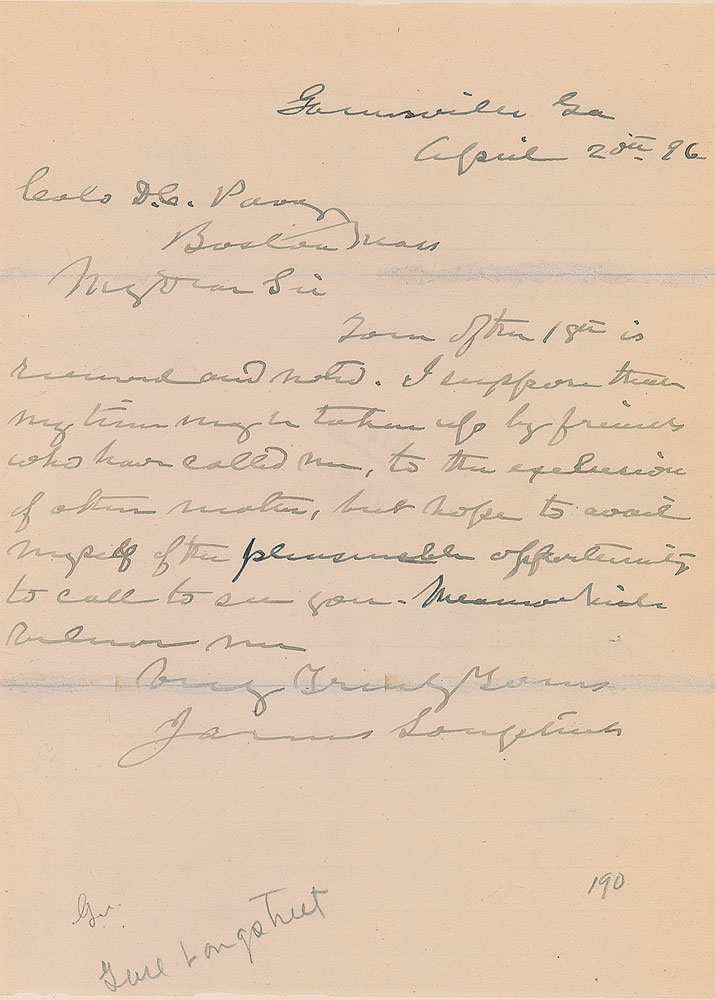 Gainesville Ga
April 20th 96
D.C.
Boston Mass
My Dear Sir
Your of the 18th is
received and noted. I suppose that
my time may be taken up by friends
who have called me, to the exclusion
of other matter, but hope to avail
myself of the pleasureable opportunity
to call to see you - Meanwhile
believe me
Very Truly Yours
James Longstreet
190
Longstreet